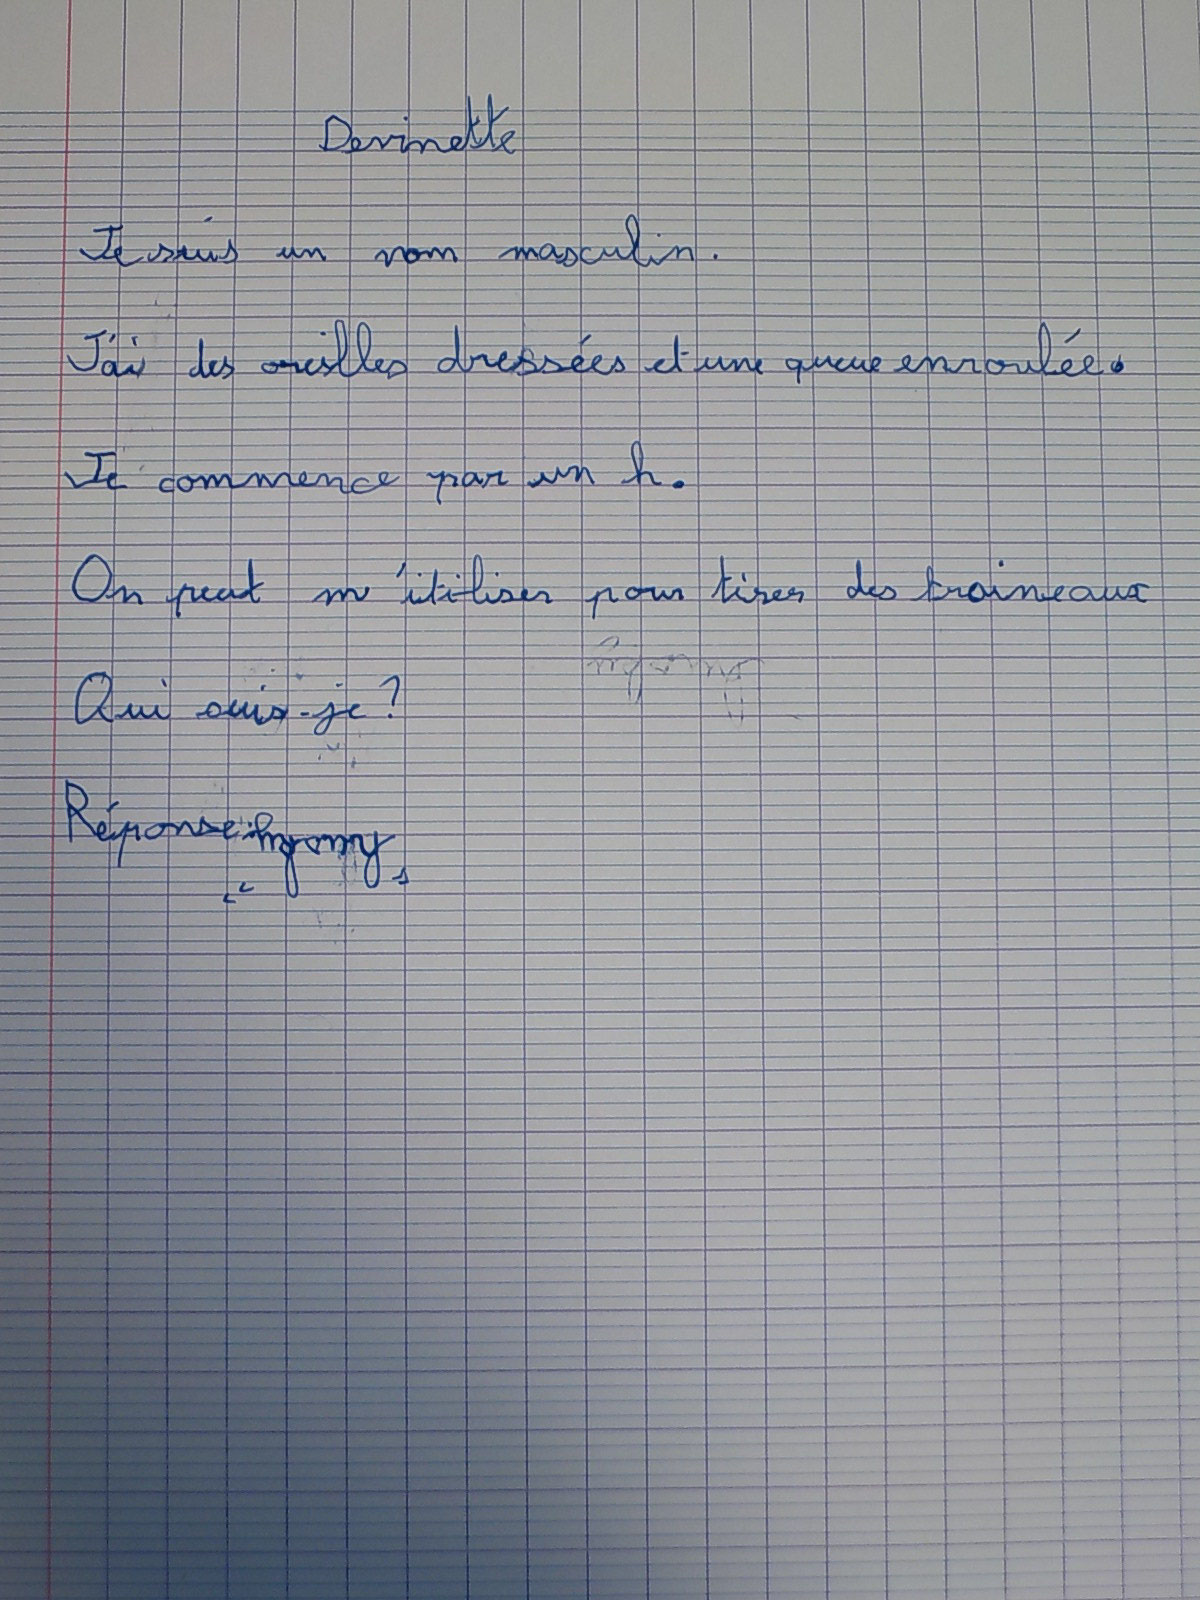 Devinette
Je suis un nom masculin.
J'ai des oreilles dressées et une queue enroulée.
Je commence par un h.
On peut m'utiliser pour tirer des traineaux
Qui suis-je?
Réponse: